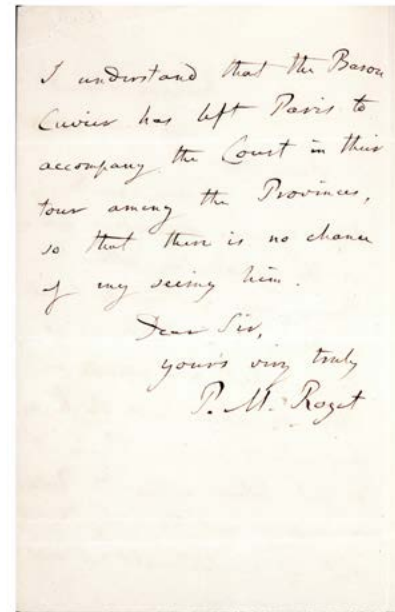 I understand that the Baron
Cuvier has left Paris to
accompany the Court in their
tour among the Provinces,
so that there is no chance
of my seeing him.
Dear Sir,
yours very truly
P. M. Roget